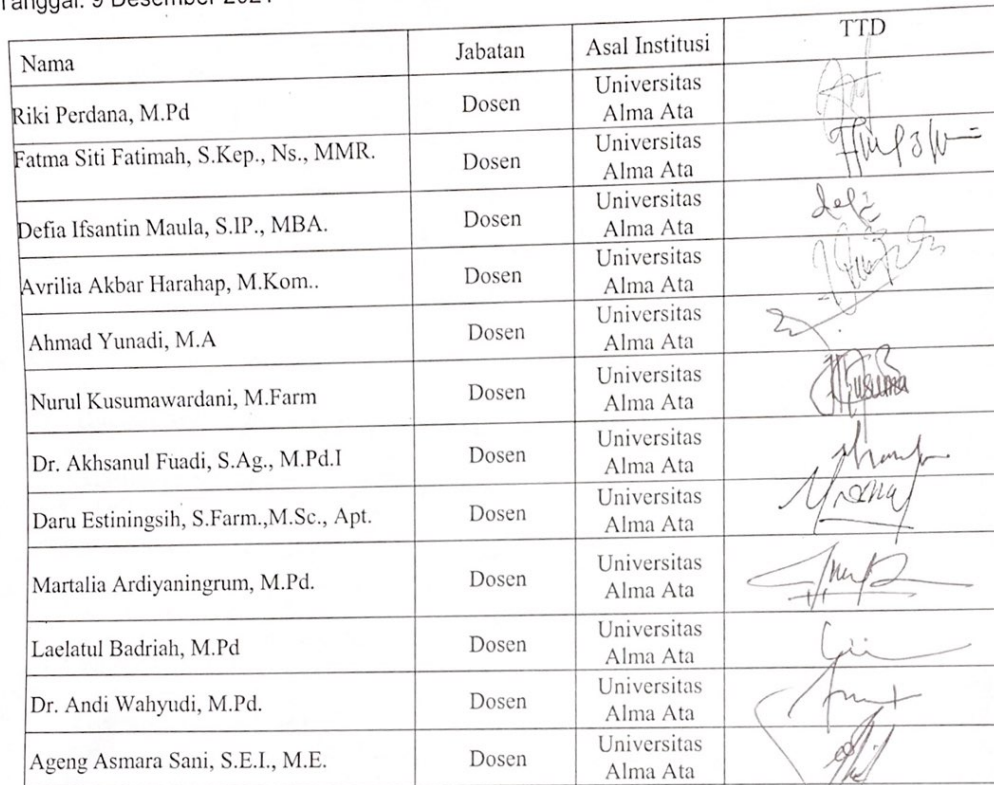 Tanggal: 9 Desember 2021
Nama Jabatan Asal Institusi TTD
Riki Perdana, M.Pd Dosen Universitas
Alma Ata
Fatma Siti Fatimah, S.Kep., Ns., MMR. Dosen Universitas
Alma Ata
Defia Ifsantin Maula, S.IP., MBA. Dosen Universitas
Alma Ata
Avrilia Akbar Harahap, M.Kom.. Dosen Universitas
Alma Ata
Ahmad Yunadi, M.A Dosen Universitas
Alma Ata
Nurul Kusumawardani, M.Farm Dosen Universitas
Alma Ata
Dr. Akhsanul Fuadi, S.Ag., M.Pd.I Dosen Universitas
Alma Ata
Daru Estiningsih, S.Farm.,M.Sc., Apt. Dosen Universitas
Alma Ata
Martalia Ardiyaningrum, M.Pd. Dosen Universitas
Alma Ata
Laelatul Badriah, M.Pd Dosen Universitas
Alma Ata
Dr. Andi Wahyudi, M.Pd. Dosen Universitas
Alma Ata
Ageng Asmara Sani, S.E.I., M.E. Dosen Universitas
Alma Ata